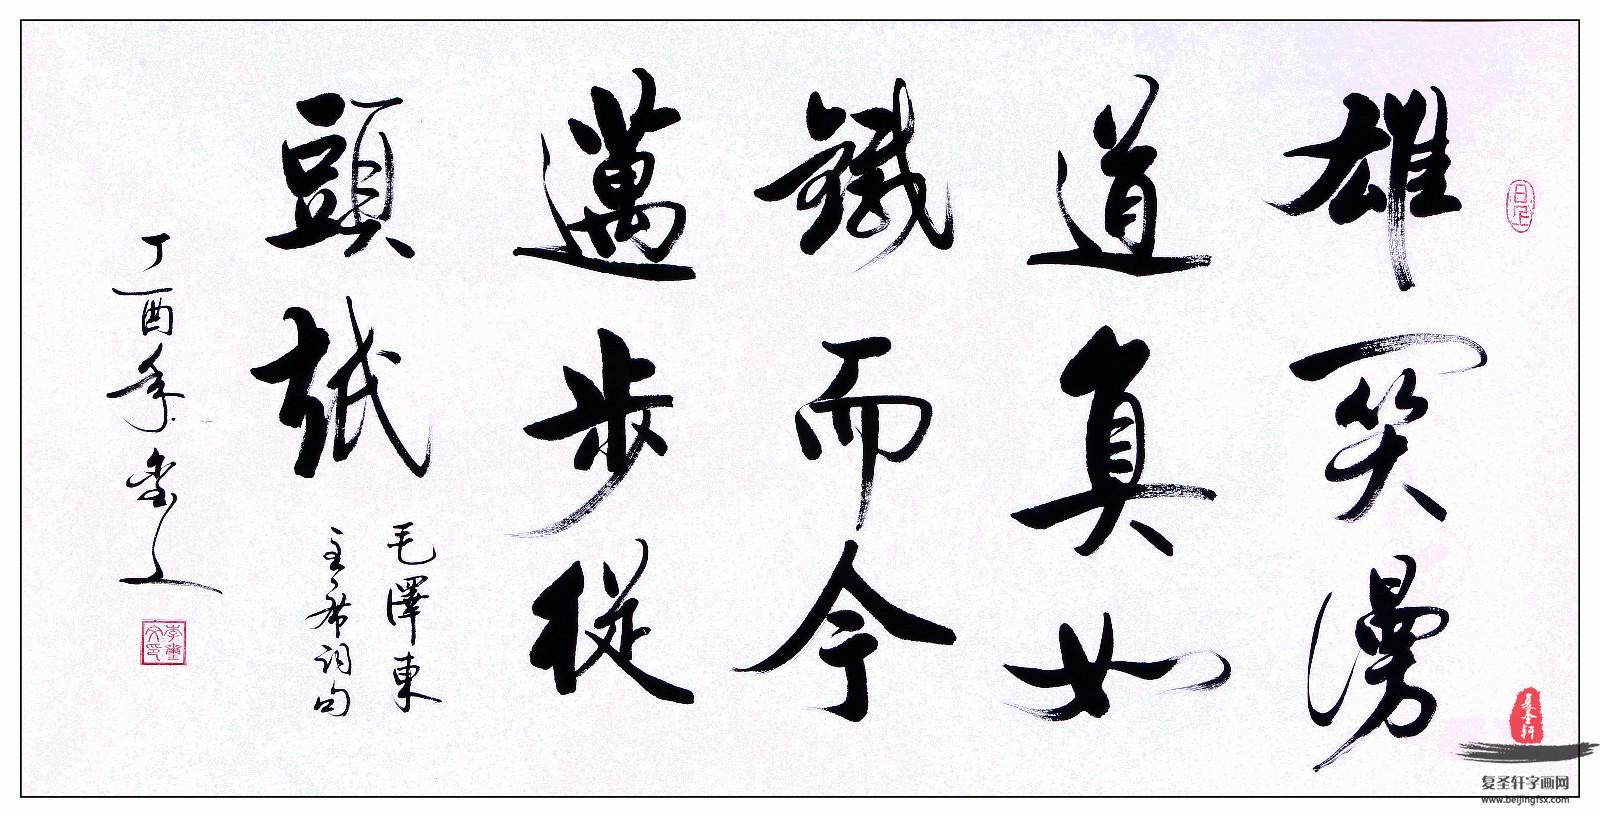 雄関漫
道真如
鐵而今
邁步從
頭越
毛澤東
主席詞句
丁酉
复圣轩
复圣轩字画网
www.beijingfsx.com